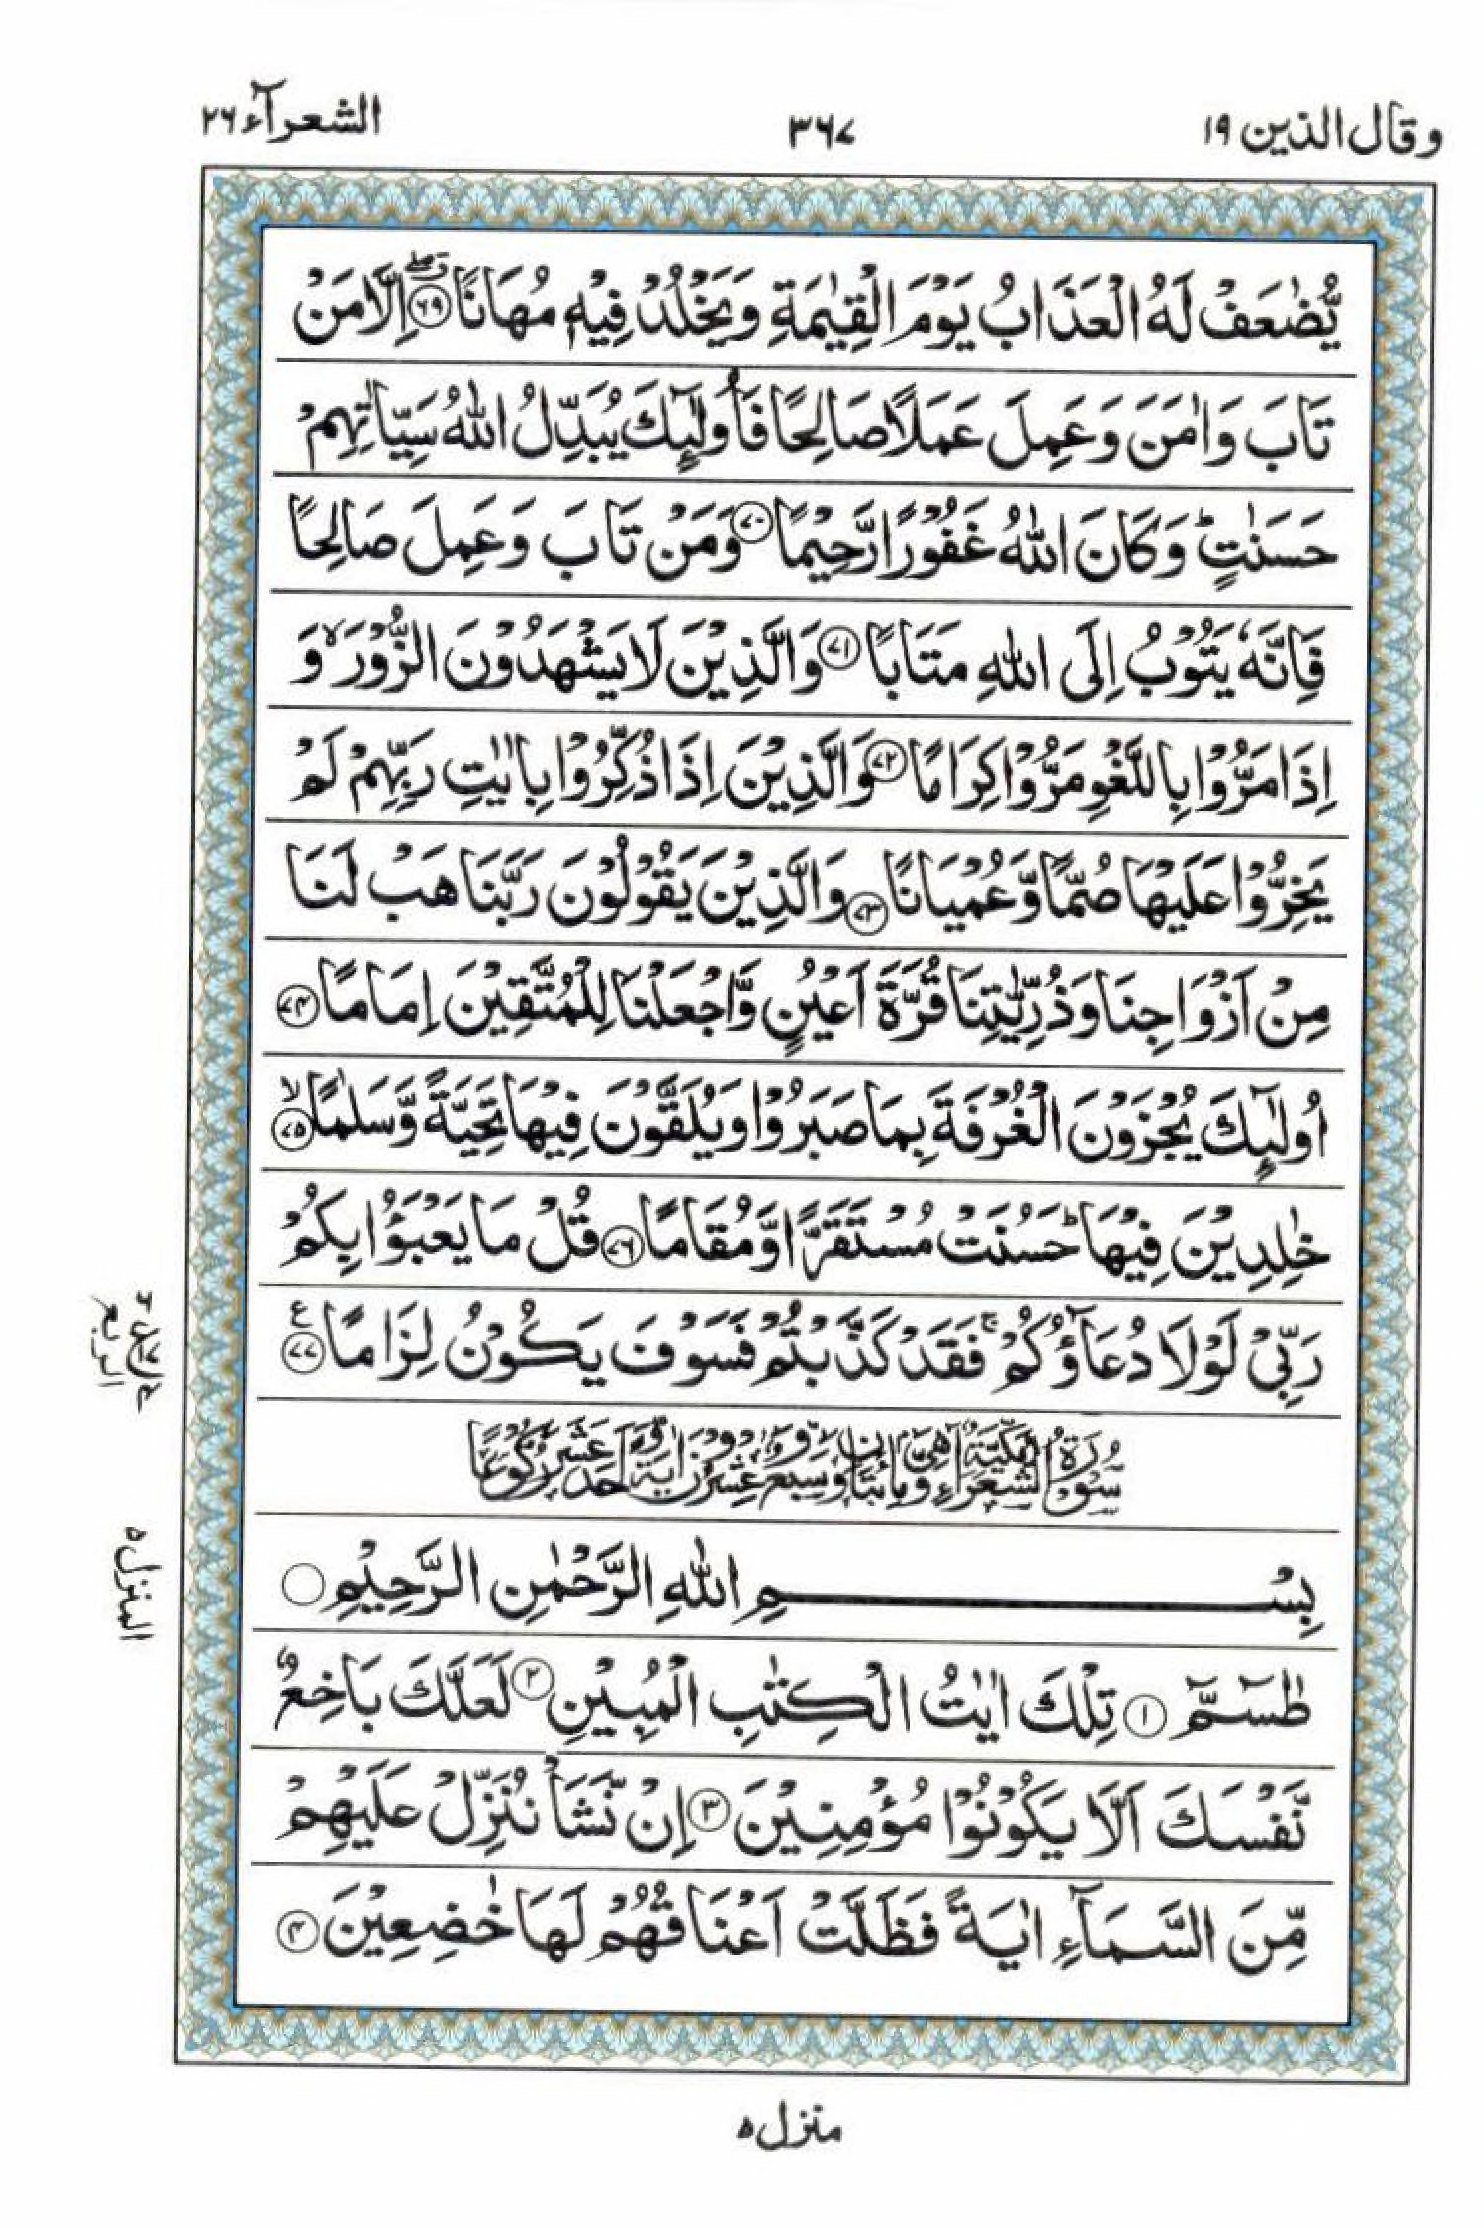 وقال الذين ١٩
٣٦٧
الشعرآء ٢٦
يُّضٰعَفْ لَهُ الْعَذَابُ يَوْمَ الْقِيٰمَةِ وَيَخْلُدْ فِيْهٖ مُهَانًا ﴿٦٩﴾ اِلَّا مَنْ
تَابَ وَاٰمَنَ وَعَمِلَ عَمَلًا صَالِحًا فَاُولٰٓئِكَ يُبَدِّلُ اللّٰهُ سَيِّاٰتِهِمْ
حَسَنٰتٍ ؕ وَكَانَ اللّٰهُ غَفُوْرًا رَّحِيْمًا ﴿٧٠﴾ وَمَنْ تَابَ وَعَمِلَ صَالِحًا
فَاِنَّهٗ يَتُوْبُ اِلَى اللّٰهِ مَتَابًا ﴿٧١﴾ وَالَّذِيْنَ لَا يَشْهَدُوْنَ الزُّوْرَ ۙ وَ
اِذَا مَرُّوْا بِاللَّغْوِ مَرُّوْا كِرَامًا ﴿٧٢﴾ وَالَّذِيْنَ اِذَا ذُكِّرُوْا بِاٰيٰتِ رَبِّهِمْ لَمْ
يَخِرُّوْا عَلَيْهَا صُمًّا وَّعُمْيَانًا ﴿٧٣﴾ وَالَّذِيْنَ يَقُوْلُوْنَ رَبَّنَا هَبْ لَنَا
مِنْ اَزْوَاجِنَا وَذُرِّيّٰتِنَا قُرَّةَ اَعْيُنٍ وَّاجْعَلْنَا لِلْمُتَّقِيْنَ اِمَامًا ﴿٧٤﴾
اُولٰٓئِكَ يُجْزَوْنَ الْغُرْفَةَ بِمَا صَبَرُوْا وَيُلَقَّوْنَ فِيْهَا تَحِيَّةً وَّسَلٰمًا ۙ﴿٧٥﴾
خٰلِدِيْنَ فِيْهَا ؕ حَسُنَتْ مُسْتَقَرًّا وَّمُقَامًا ﴿٧٦﴾ قُلْ مَا يَعْبَؤُا بِكُمْ
رَبِّيْ لَوْلَا دُعَآؤُكُمْ ۚ فَقَدْ كَذَّبْتُمْ فَسَوْفَ يَكُوْنُ لِزَامًا ﴿٧٧﴾ ع
سُوْرَةُ الشُّعَرَاءِ مَكِّيَّةٌ وَّهِيَ مِائَتَانِ وَسَبْعٌ وَّعِشْرُوْنَ اٰيَةً وَّاَحَدَ عَشَرَ رُكُوْعًا
بِسْمِ اللّٰهِ الرَّحْمٰنِ الرَّحِيْمِ
طٰسٓمّٓ ﴿١﴾ تِلْكَ اٰيٰتُ الْكِتٰبِ الْمُبِيْنِ ﴿٢﴾ لَعَلَّكَ بَاخِعٌ
نَّفْسَكَ اَلَّا يَكُوْنُوْا مُؤْمِنِيْنَ ﴿٣﴾ اِنْ نَّشَاْ نُنَزِّلْ عَلَيْهِمْ
مِّنَ السَّمَآءِ اٰيَةً فَظَلَّتْ اَعْنَاقُهُمْ لَهَا خٰضِعِيْنَ ﴿٤﴾
الربع
المنزل ٥
منزل ٥